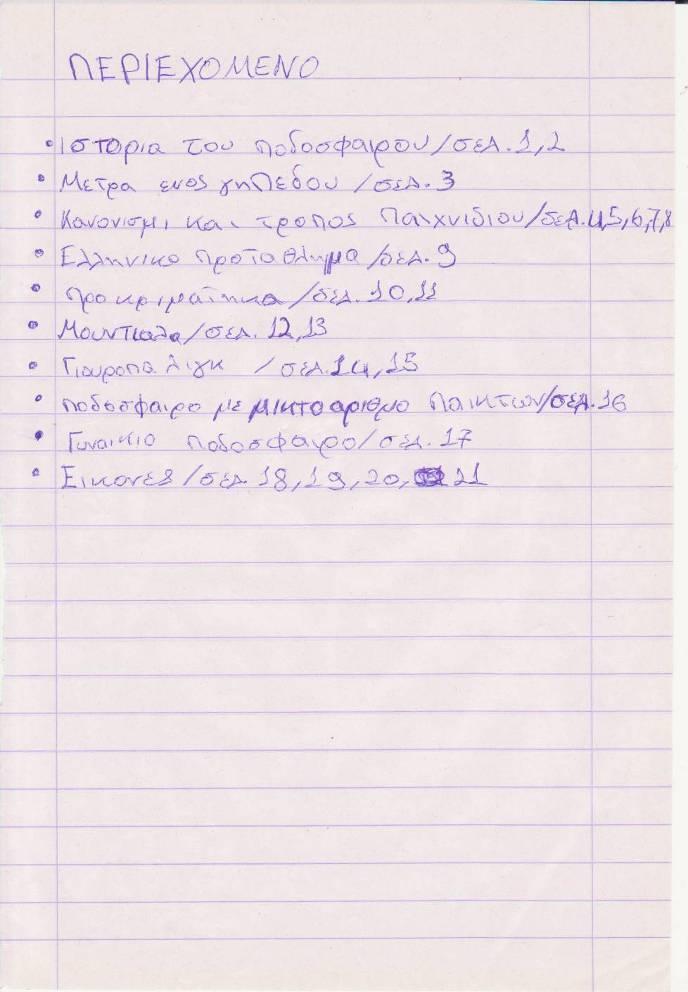 ΠΕΡΙΕΧΟΜΕΝΟ
• Ιστορια του ποδοσφαιρου/σελ.1,2
• Μετρα ενος γηπεδου/σελ.3
• Κανονισμι και τροπος παιχνιδιου/σελ.4,5,6,7,8
• Ελληνικο προταθλημα/σελ.9
• Προκριματηκα/σελ.10,11
• Μουντιαλα/σελ.12,13
• Γιουροπα λιγκ /σελ.14,15
• ποδοσφαιρο με μικτο αριθμο παικτων/σελ.16
• Γυναικιο ποδοσφαιρο/σελ.17
• Εικονες/σελ.18,19,20,21